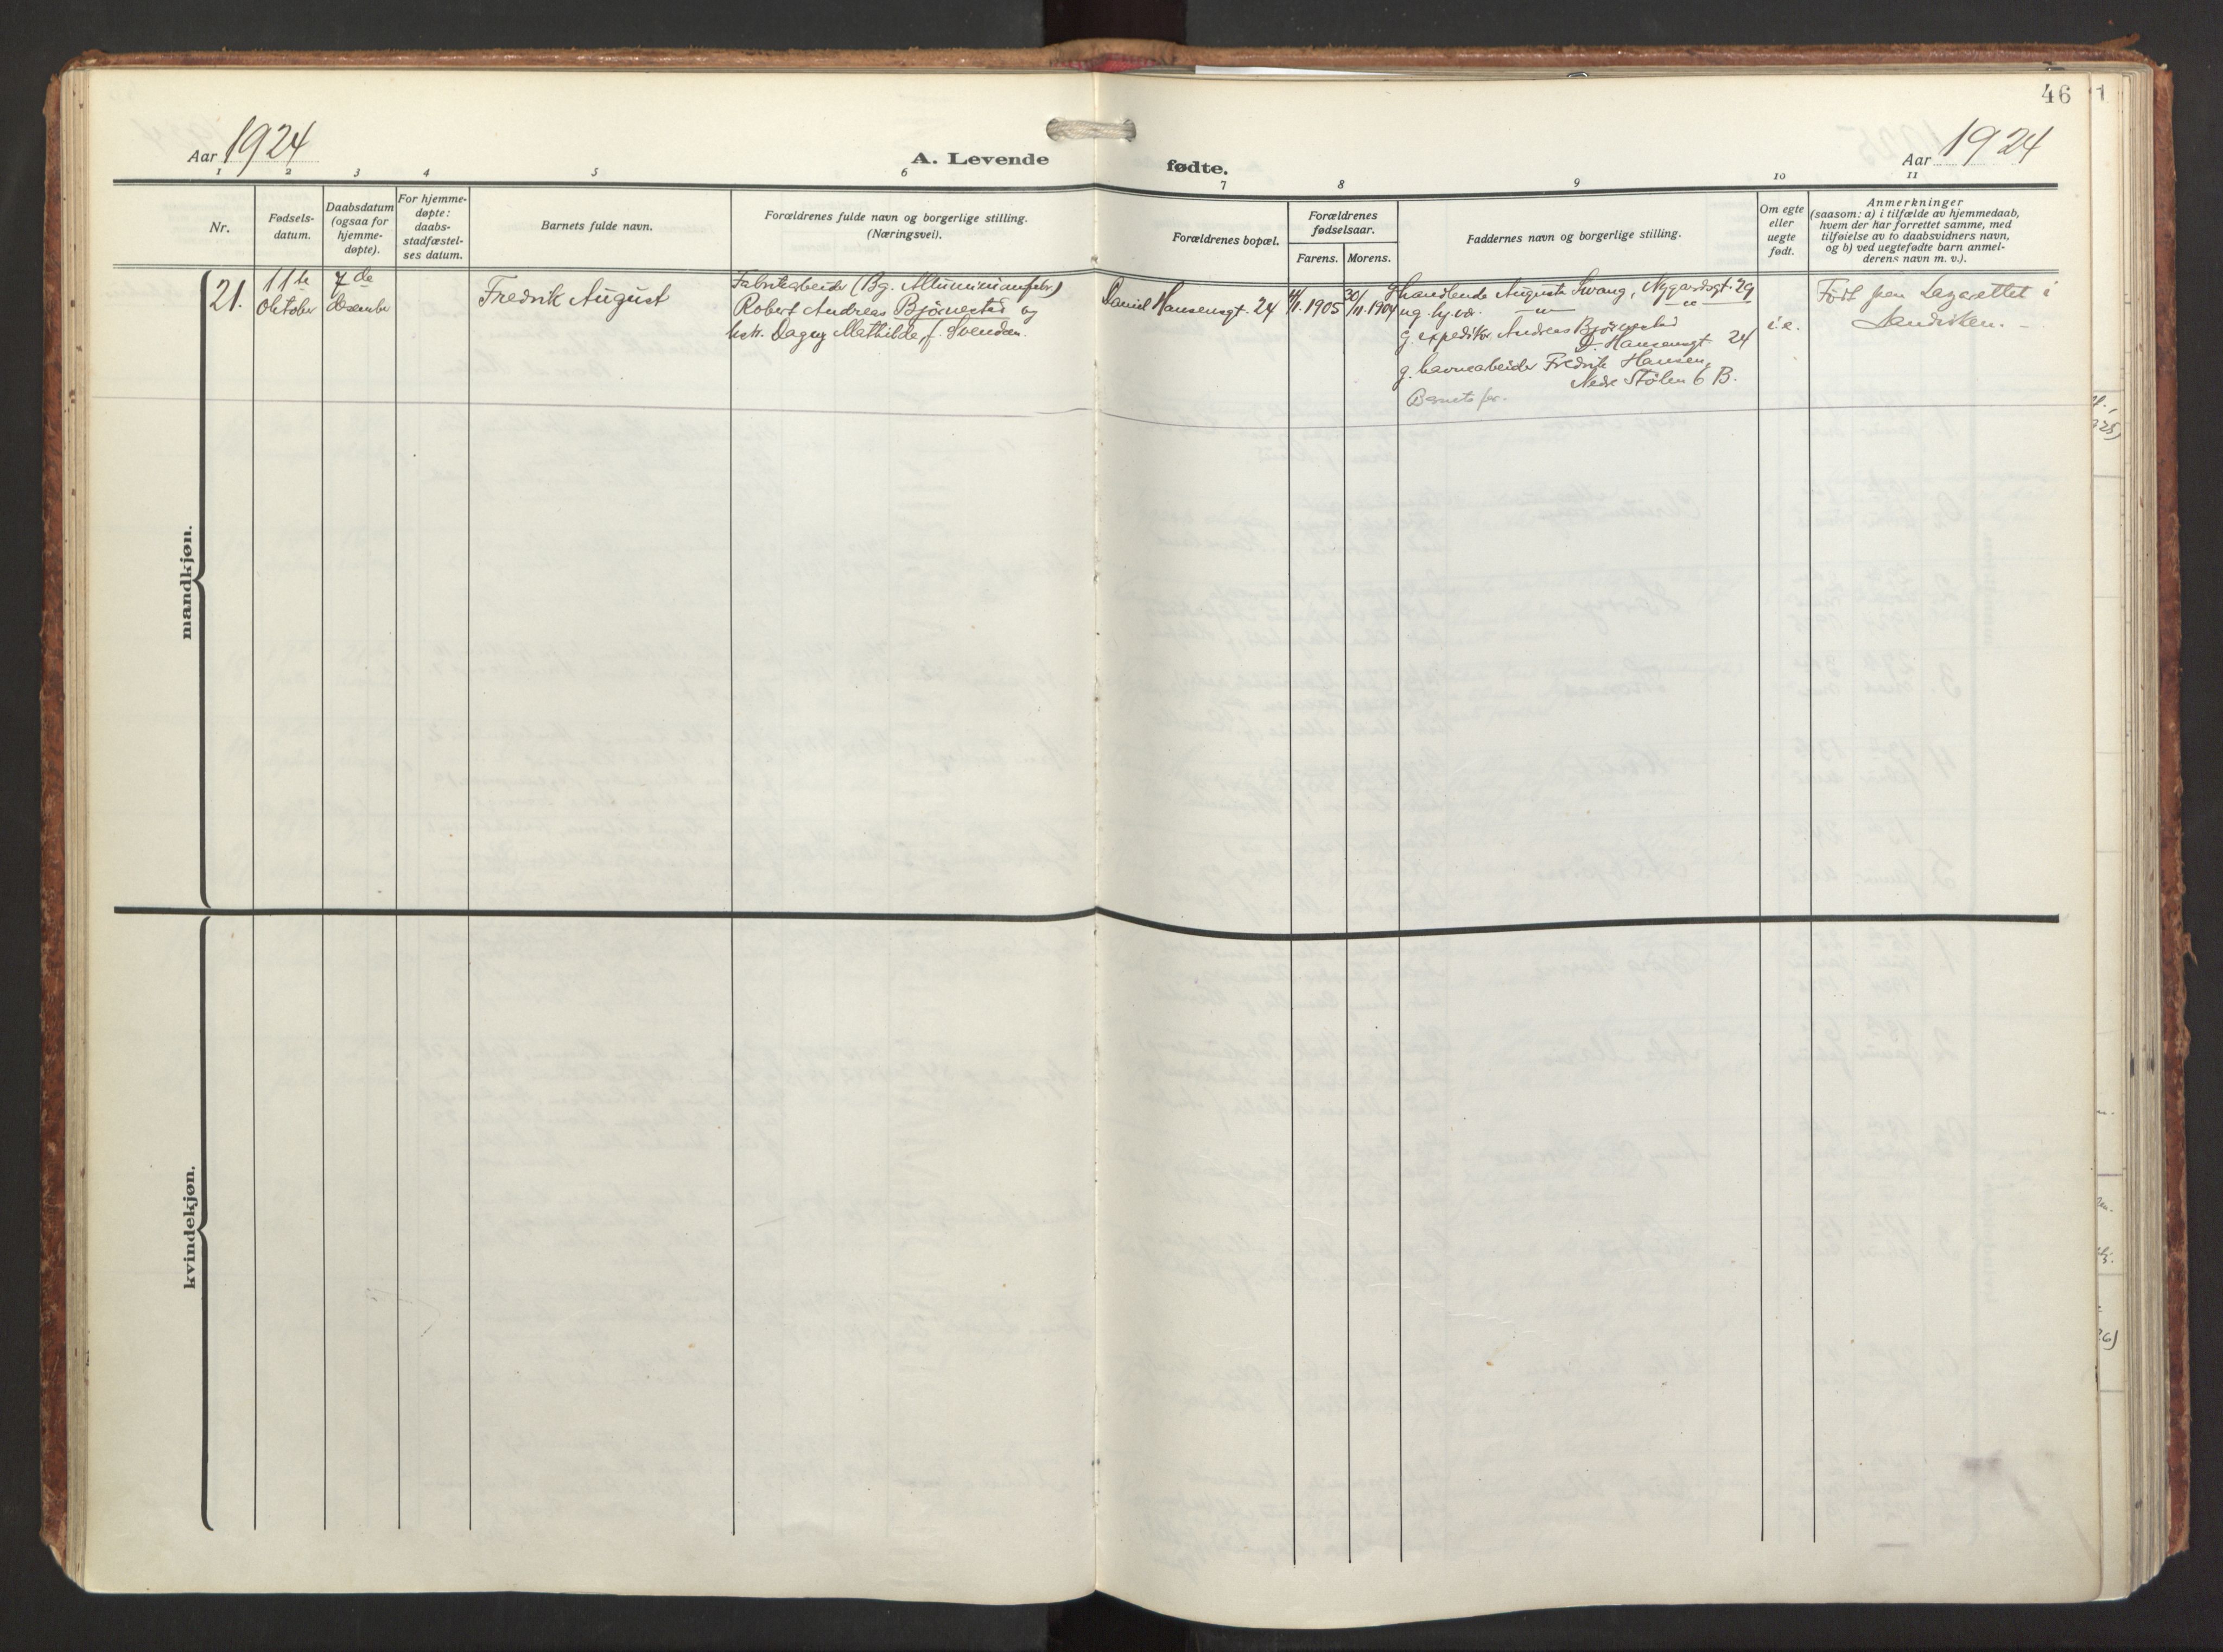 46
Aar 1924
A. Levende
fødte.
Aar 1924
1 2 3 4 5 6 7 8 9 10 11
Nr.
Fødsels-
datum.
Daabsdatum
(ogsaa for
hjemme-
døpte).
For hjemme-
døpte:
daabs-
stadfæstel-
ses datum.
Barnets fulde navn.
Forældrenes fulde navn og borgerlige stilling.
(Næringsvei).
Forældrenes bopæl.
Forældrenes
fødselsaar.
Farens. Morens.
Faddernes navn og borgerlige stilling.
Om egte
eller
uegte
født.
Anmerkninger
(saasom: a) i tilfælde av hjemmedaab,
hvem der har forrettet samme, med
tilføielse av to daabsvidners navn,
og b) ved uegtefødte barn anmel-
derens navn m. v.).
mandkjøn.
21.
11te
Oktober
7de
desember
Fredrik August
Fabrikarbeider (Bg. Alluminiumfabr)
Robert Andreas Bjørnestad og
hstr. Dagny Mathilde f. Svendsen.
Daniel Hansensgt. 24
1905
30/11 1904
handlende Auguste Svang, Nygaardsgt. 29
ug. hj.vær. -"- -"-
g. expeditør Andreas Bjørnestad
D. Hansensgt 24
g. havnearbeider Fredrik Hansen,
Nedre Stølen 6 B.
Barnets far.
i.e.
Født paa Lazarettet i
Sandviken.
kvindekjøn.